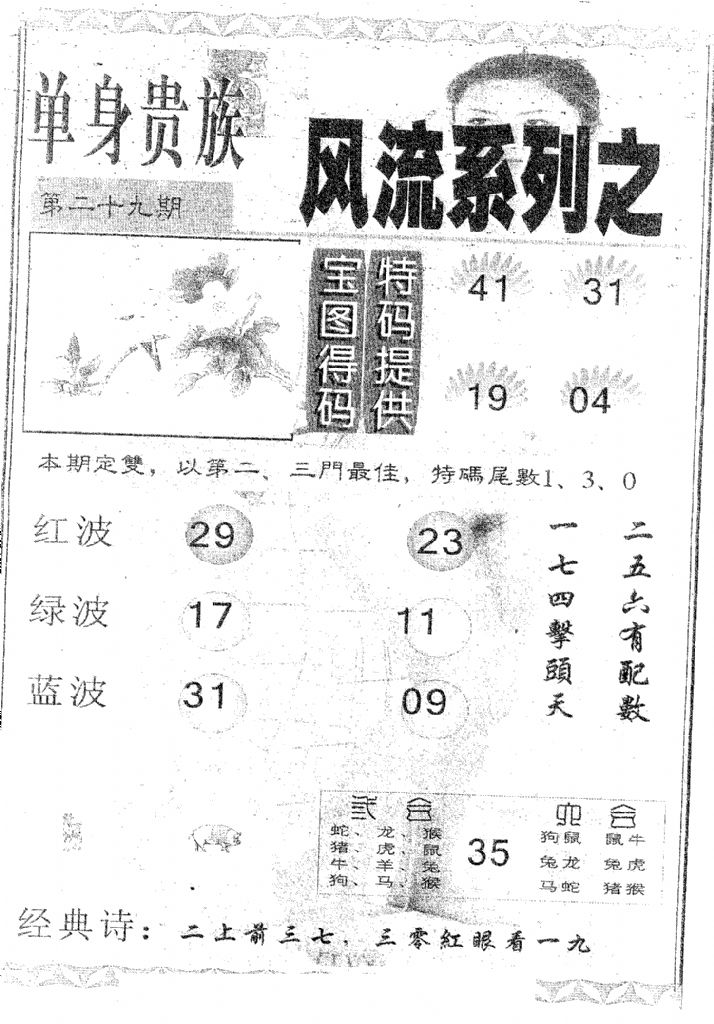 单身贵族
风流系列之
第二十九期
宝图得码
特码提供
41 31
19 04
本期定雙，以第二、三門最佳，特碼尾數1、3、0
红波 29 23
绿波 17 11
蓝波 31 09
二五六有配數
一七四擊頭天
合
蛇、龙、猴
猪、虎、鼠
牛、羊、兔
狗、马、猴
35
六合
狗鼠 鼠牛
兔龙 兔虎
马蛇 猪猴
经典诗：二上前三七．三零紅眼看一九